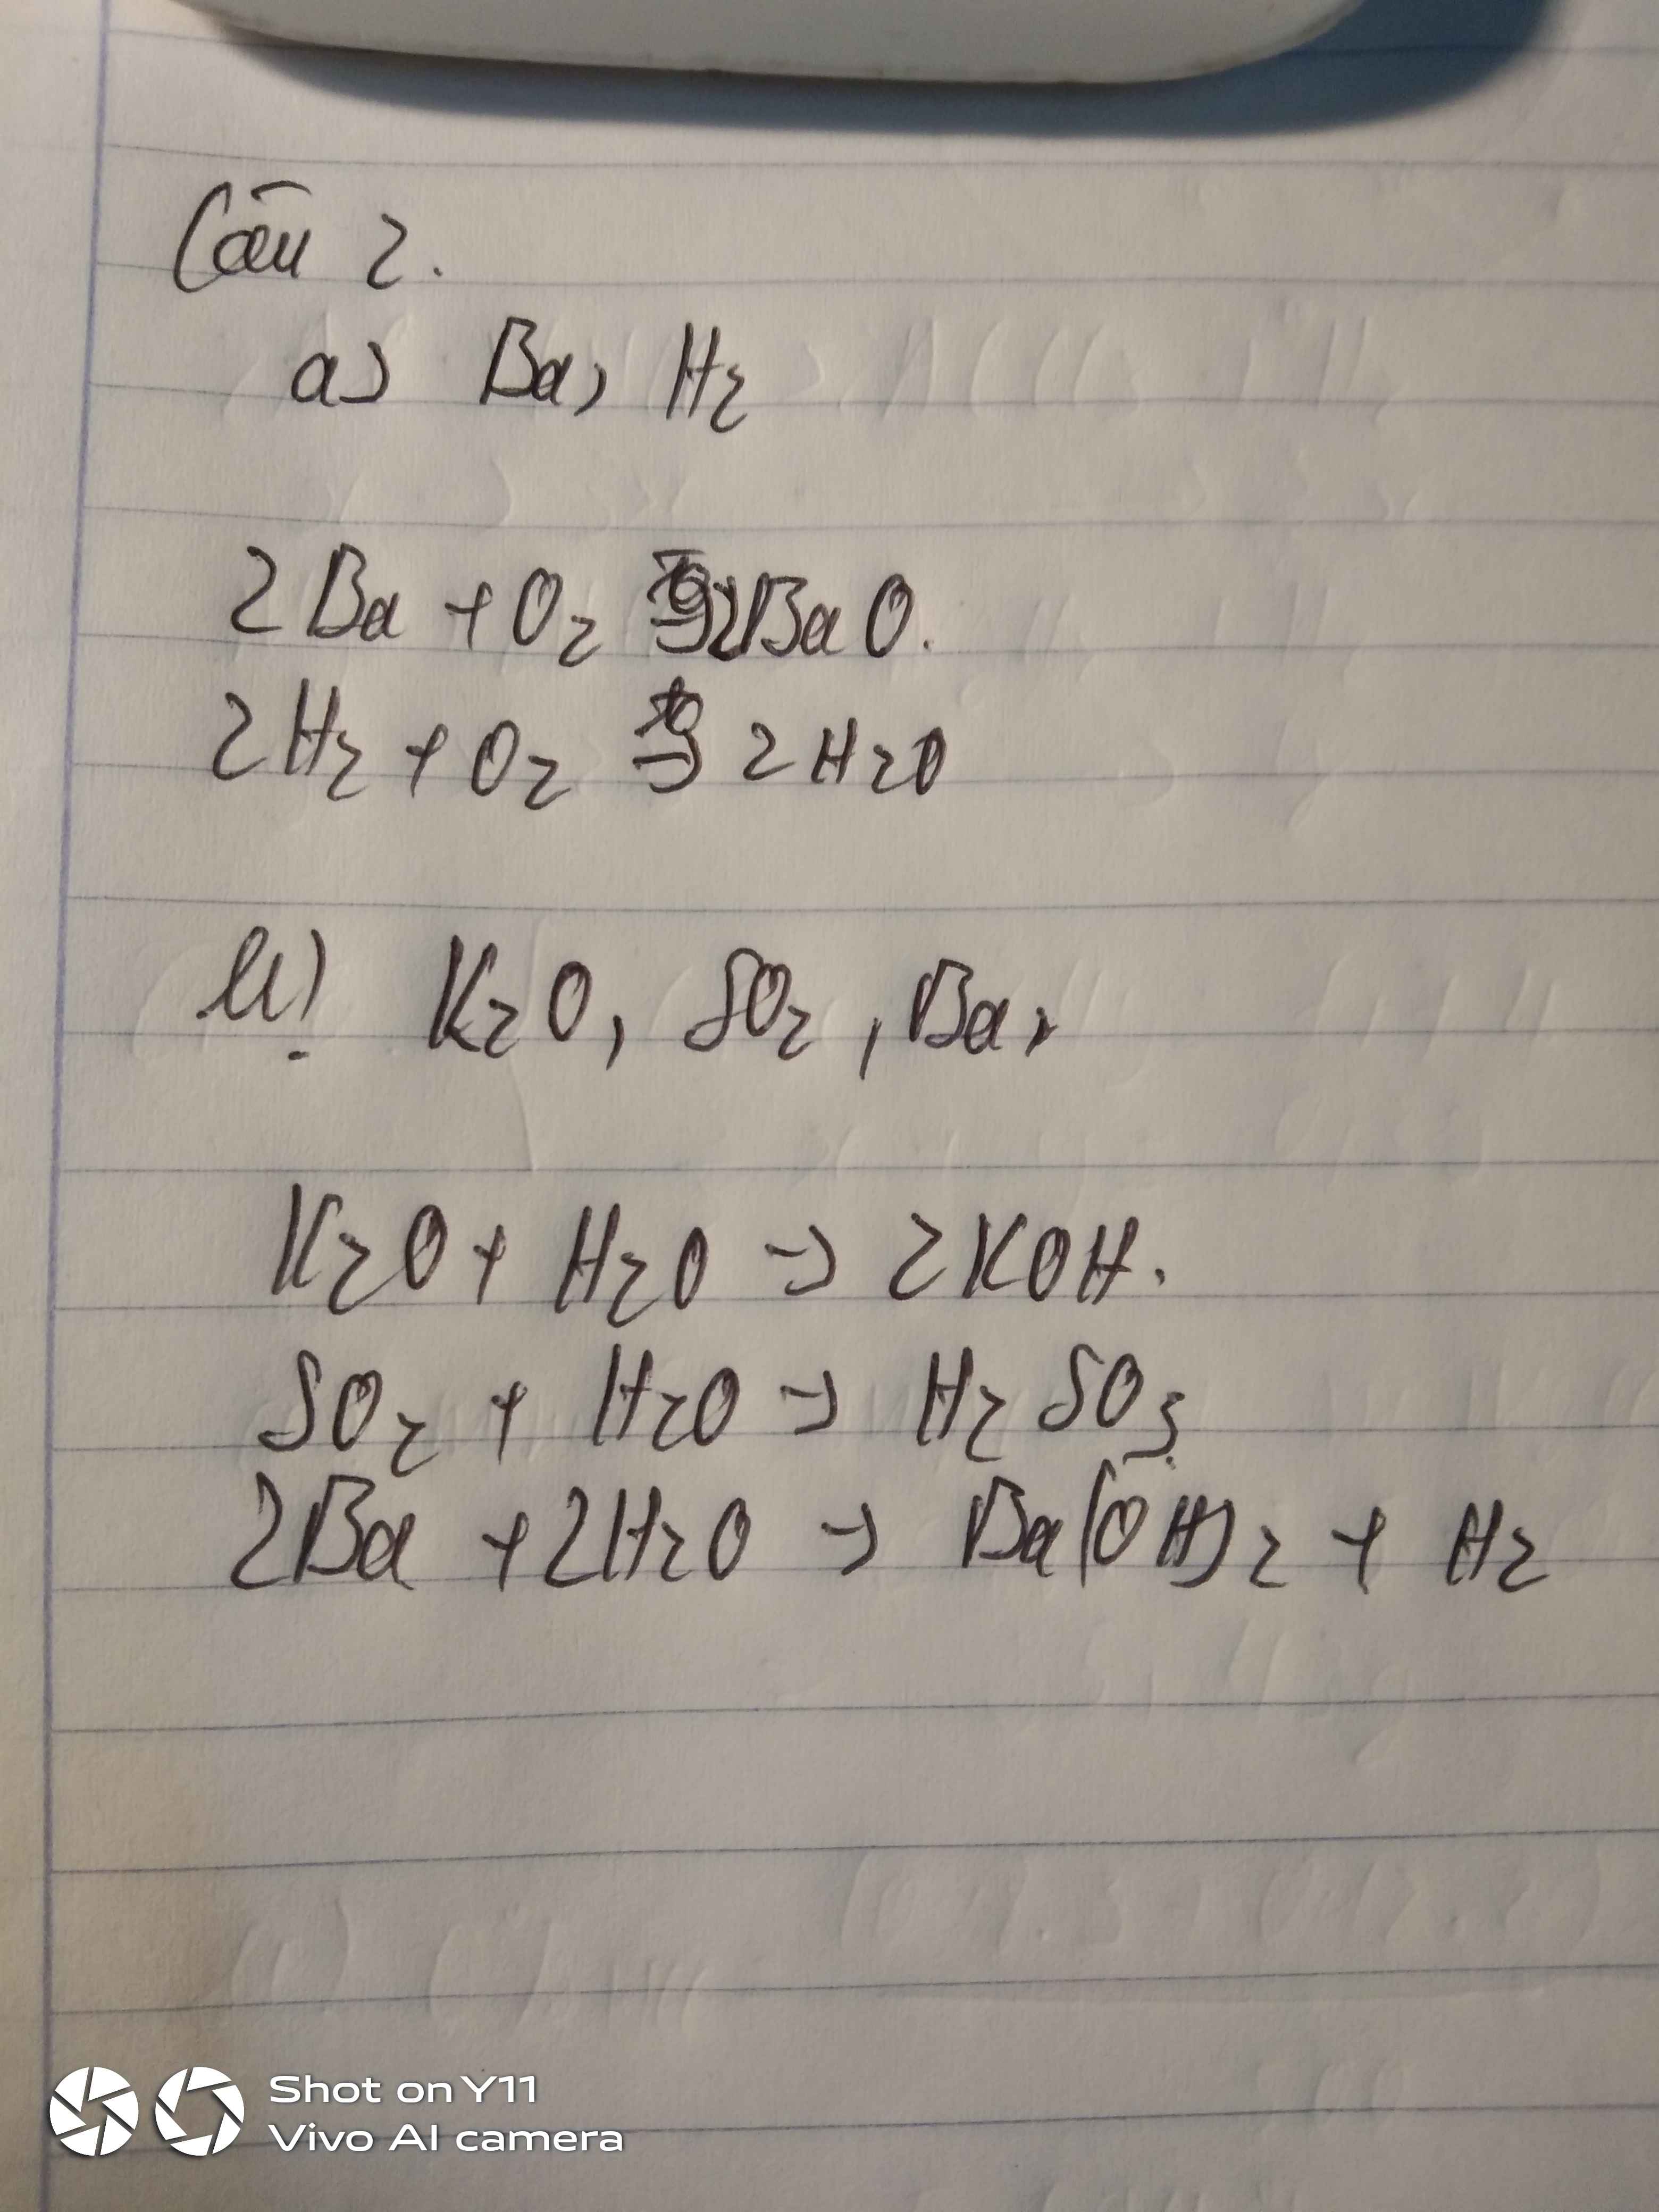 Câu 2.
a) Ba, H2
2Ba + O2 t° → 2BaO.
2H2 + O2 t° → 2H2O
b) K2O, SO2, Ba,
K2O + H2O → 2KOH.
SO2 + H2O → H2SO3
2Ba + 2H2O → Ba(OH)2 + H2
Shot on Y11
Vivo AI camera